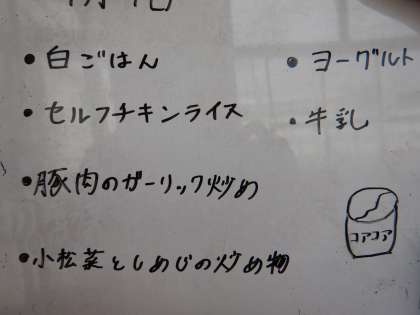 ・白ごはん
・セルフチキンライス
・豚肉のガーリック炒め
・小松菜としめじの炒め物
・ヨーグルト
・牛乳
コアコア